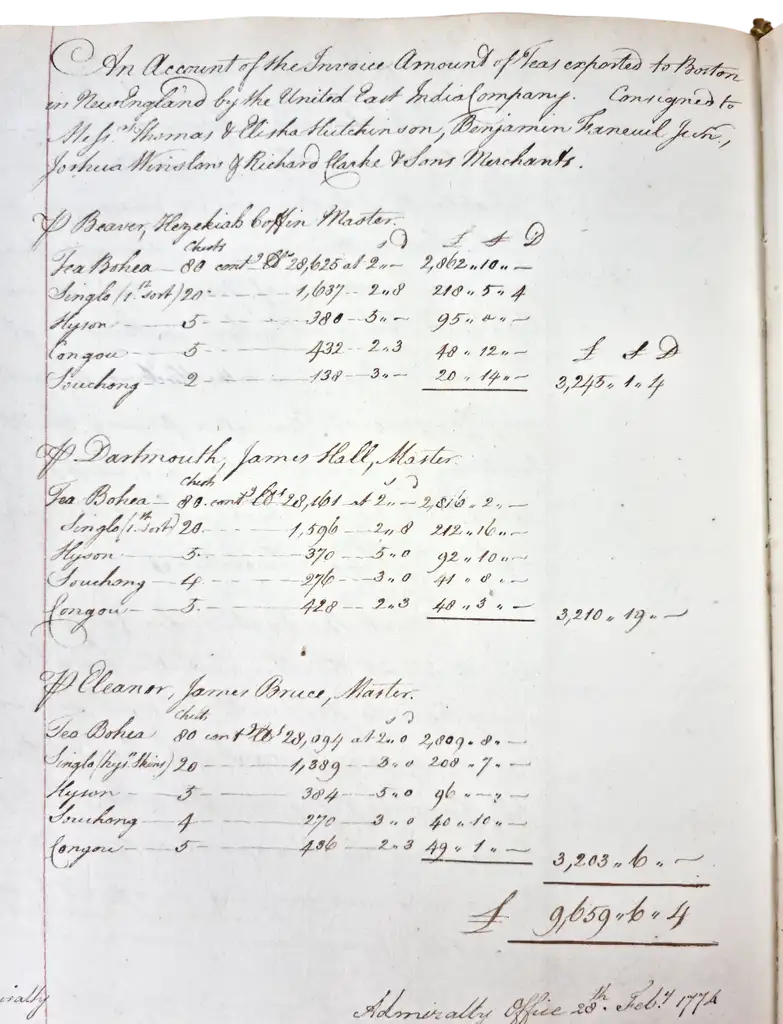 An Account of the Invoice Amount of Teas exported to Boston
in New England by the United East India Company. Consigned to
Messrs. Thomas & Elisha Hutchinson, Benjamin Faneuil Junr.,
Joshua Winslow & Richard Clarke & Sons Merchants.
P Beaver, Hezekiah Coffin Master.
Chests s D £ s D
Tea Bohea — 80 contg. lbs 28,625 at 2 „ — 2,862 „ 10 „ —
Singlo (1st. sort) 20 — 1,637 — 2 „ 8 218 „ 5 „ 4
Hyson — 5 — 380 — 5 „ — 95 „ „ —
Congou — 5 — 432 — 2 „ 3 48 „ 12 „ — £ s D
Souchong — 2 — 138 — 3 „ — 20 „ 14 „ — 3,245 „ 1 „ 4
P Dartmouth, James Hall, Master.
Chests s D
Tea Bohea — 80 contg. lbs 28,161 at 2 „ — 2,816 „ 2 „ —
Singlo (1st. sort) 20 — 1,596 — 2 „ 8 212 „ 16 „ —
Hyson — 5 — 370 — 5 „ 0 92 „ 10 „ —
Souchong — 4 — 276 — 3 „ 0 41 „ 8 „ —
Congou — 5 — 428 — 2 „ 3 48 „ 3 „ — 3,210 „ 19 „ —
P Eleanor, James Bruce, Master.
Chests s D
Tea Bohea 80 contg. lbs 28,094 at 2 „ 0 2,809 „ 8 „ —
Singlo (hysn. skins) 20 — 1,389 — 3 „ 0 208 „ 7 „ —
Hyson — 5 — 384 — 5 „ 0 96 „ — „ —
Souchong — 4 — 270 — 3 „ 0 40 „ 10 „ —
Congou — 5 — 436 — 2 „ 3 49 „ 1 „ — 3,203 „ 6 „ —
£ 9,659 „ 6 „ 4
Admiralty Office 28th. Feby. 1774